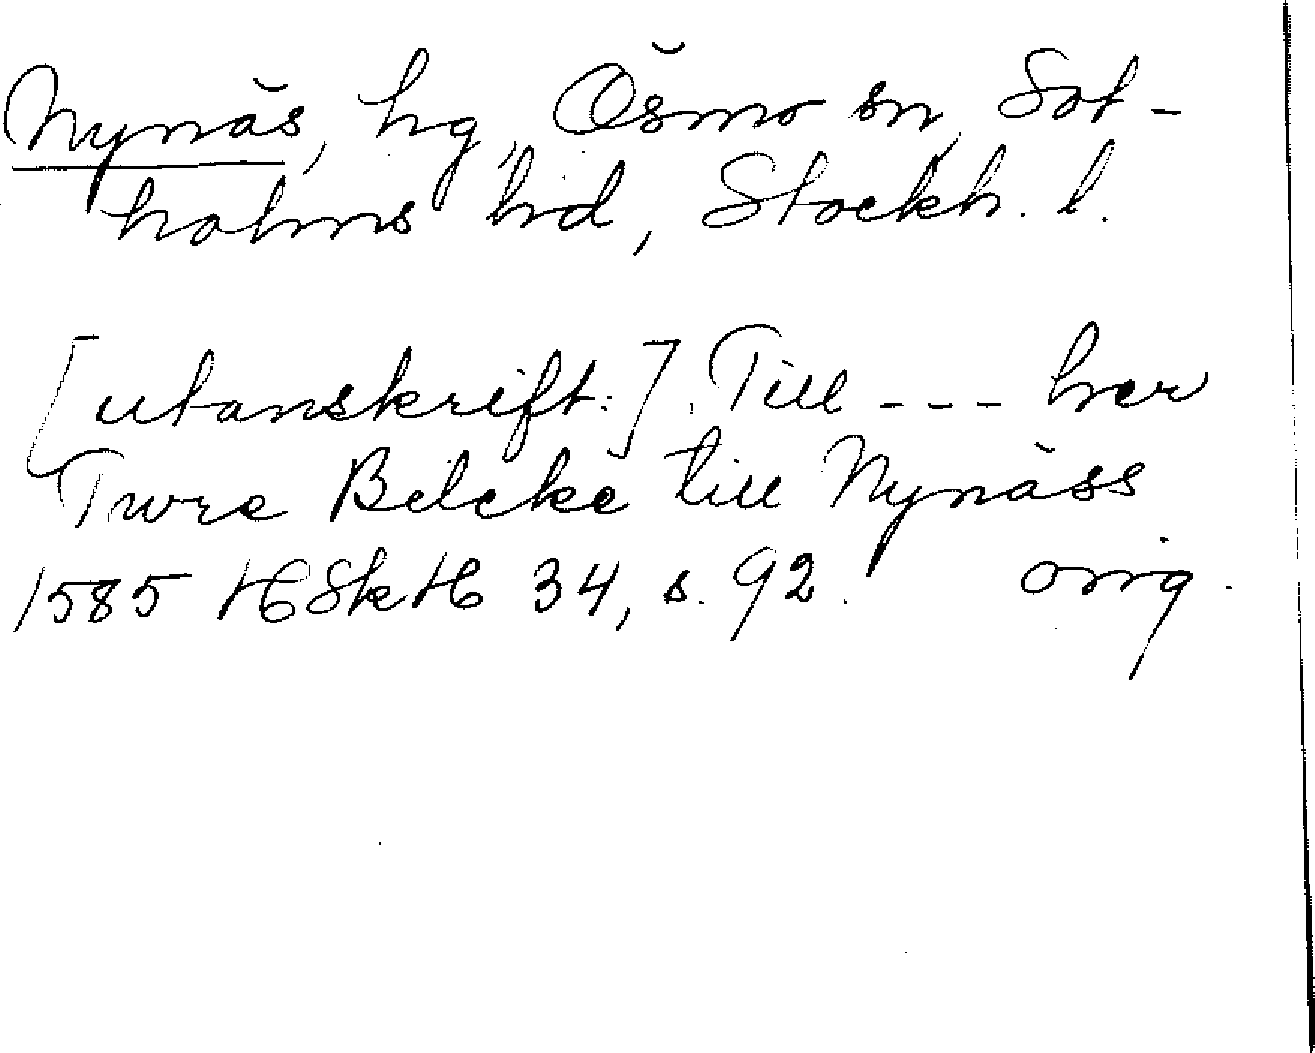 Nynäs, hg, Ösmo sn, Sot-
holms hd, Stockh. l.
[utanskrift:] Till --- her
Twre Belcke till Nynäss
1585 HSkH 34, s. 92. orig.